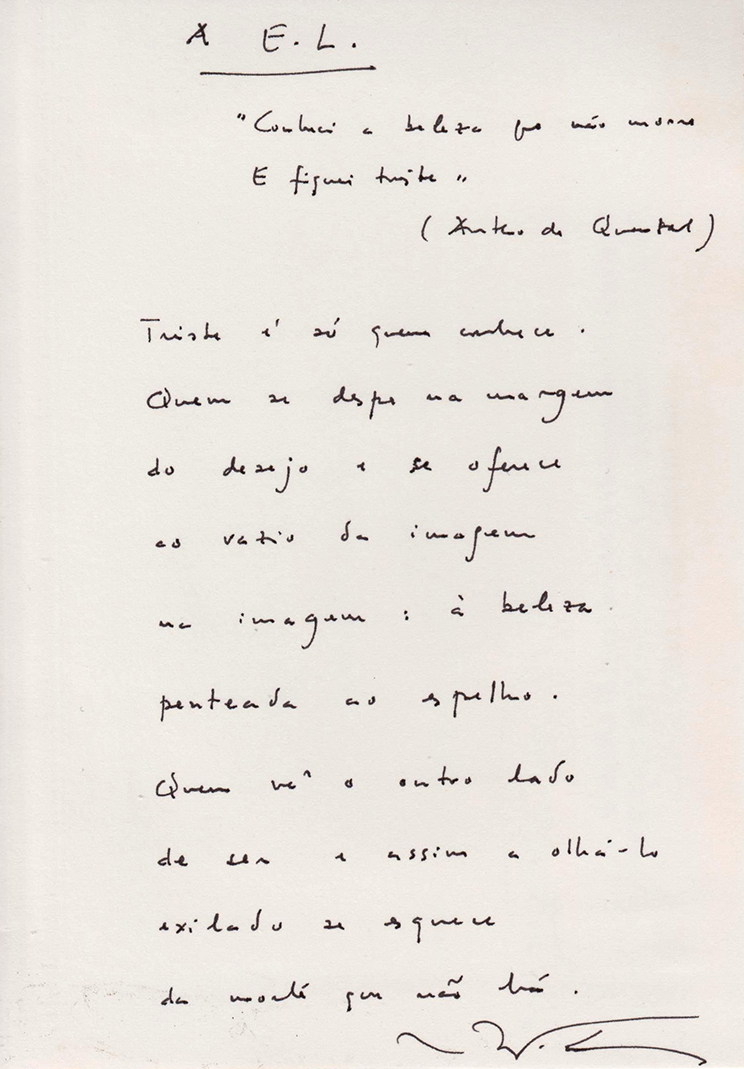 A E.L.
"Conheci a beleza que não morre
E fiquei triste"
(Antero de Quental)
Triste é só quem conhece.
Quem se despe na margem
do desejo e se oferece
ao vazio da imagem
na imagem: à beleza
penteada ao espelho.
Quem vê o outro lado
de ser e assim a olhá-lo
exilado se esquece
da morte que não há.